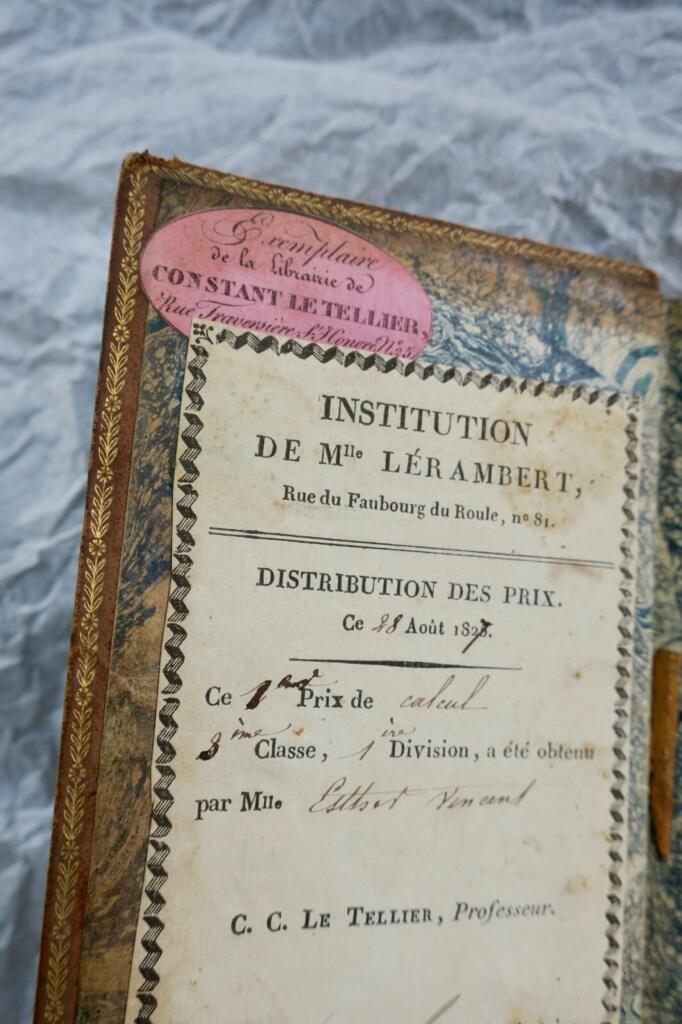 Exemplaire
de la Librairie de
CONSTANT LE TELLIER,
Rue Traversière St. Honoré N.º 25
INSTITUTION
DE Mlle LÉRAMBERT,
Rue du Faubourg du Roule, nº 81.
DISTRIBUTION DES PRIX.
Ce 28 Août 1827.
Ce Prix de calcul
3ème Classe, 1ière Division, a été obtenu
par Mlle Esther Vincent
C. C. LE TELLIER, Professeur.